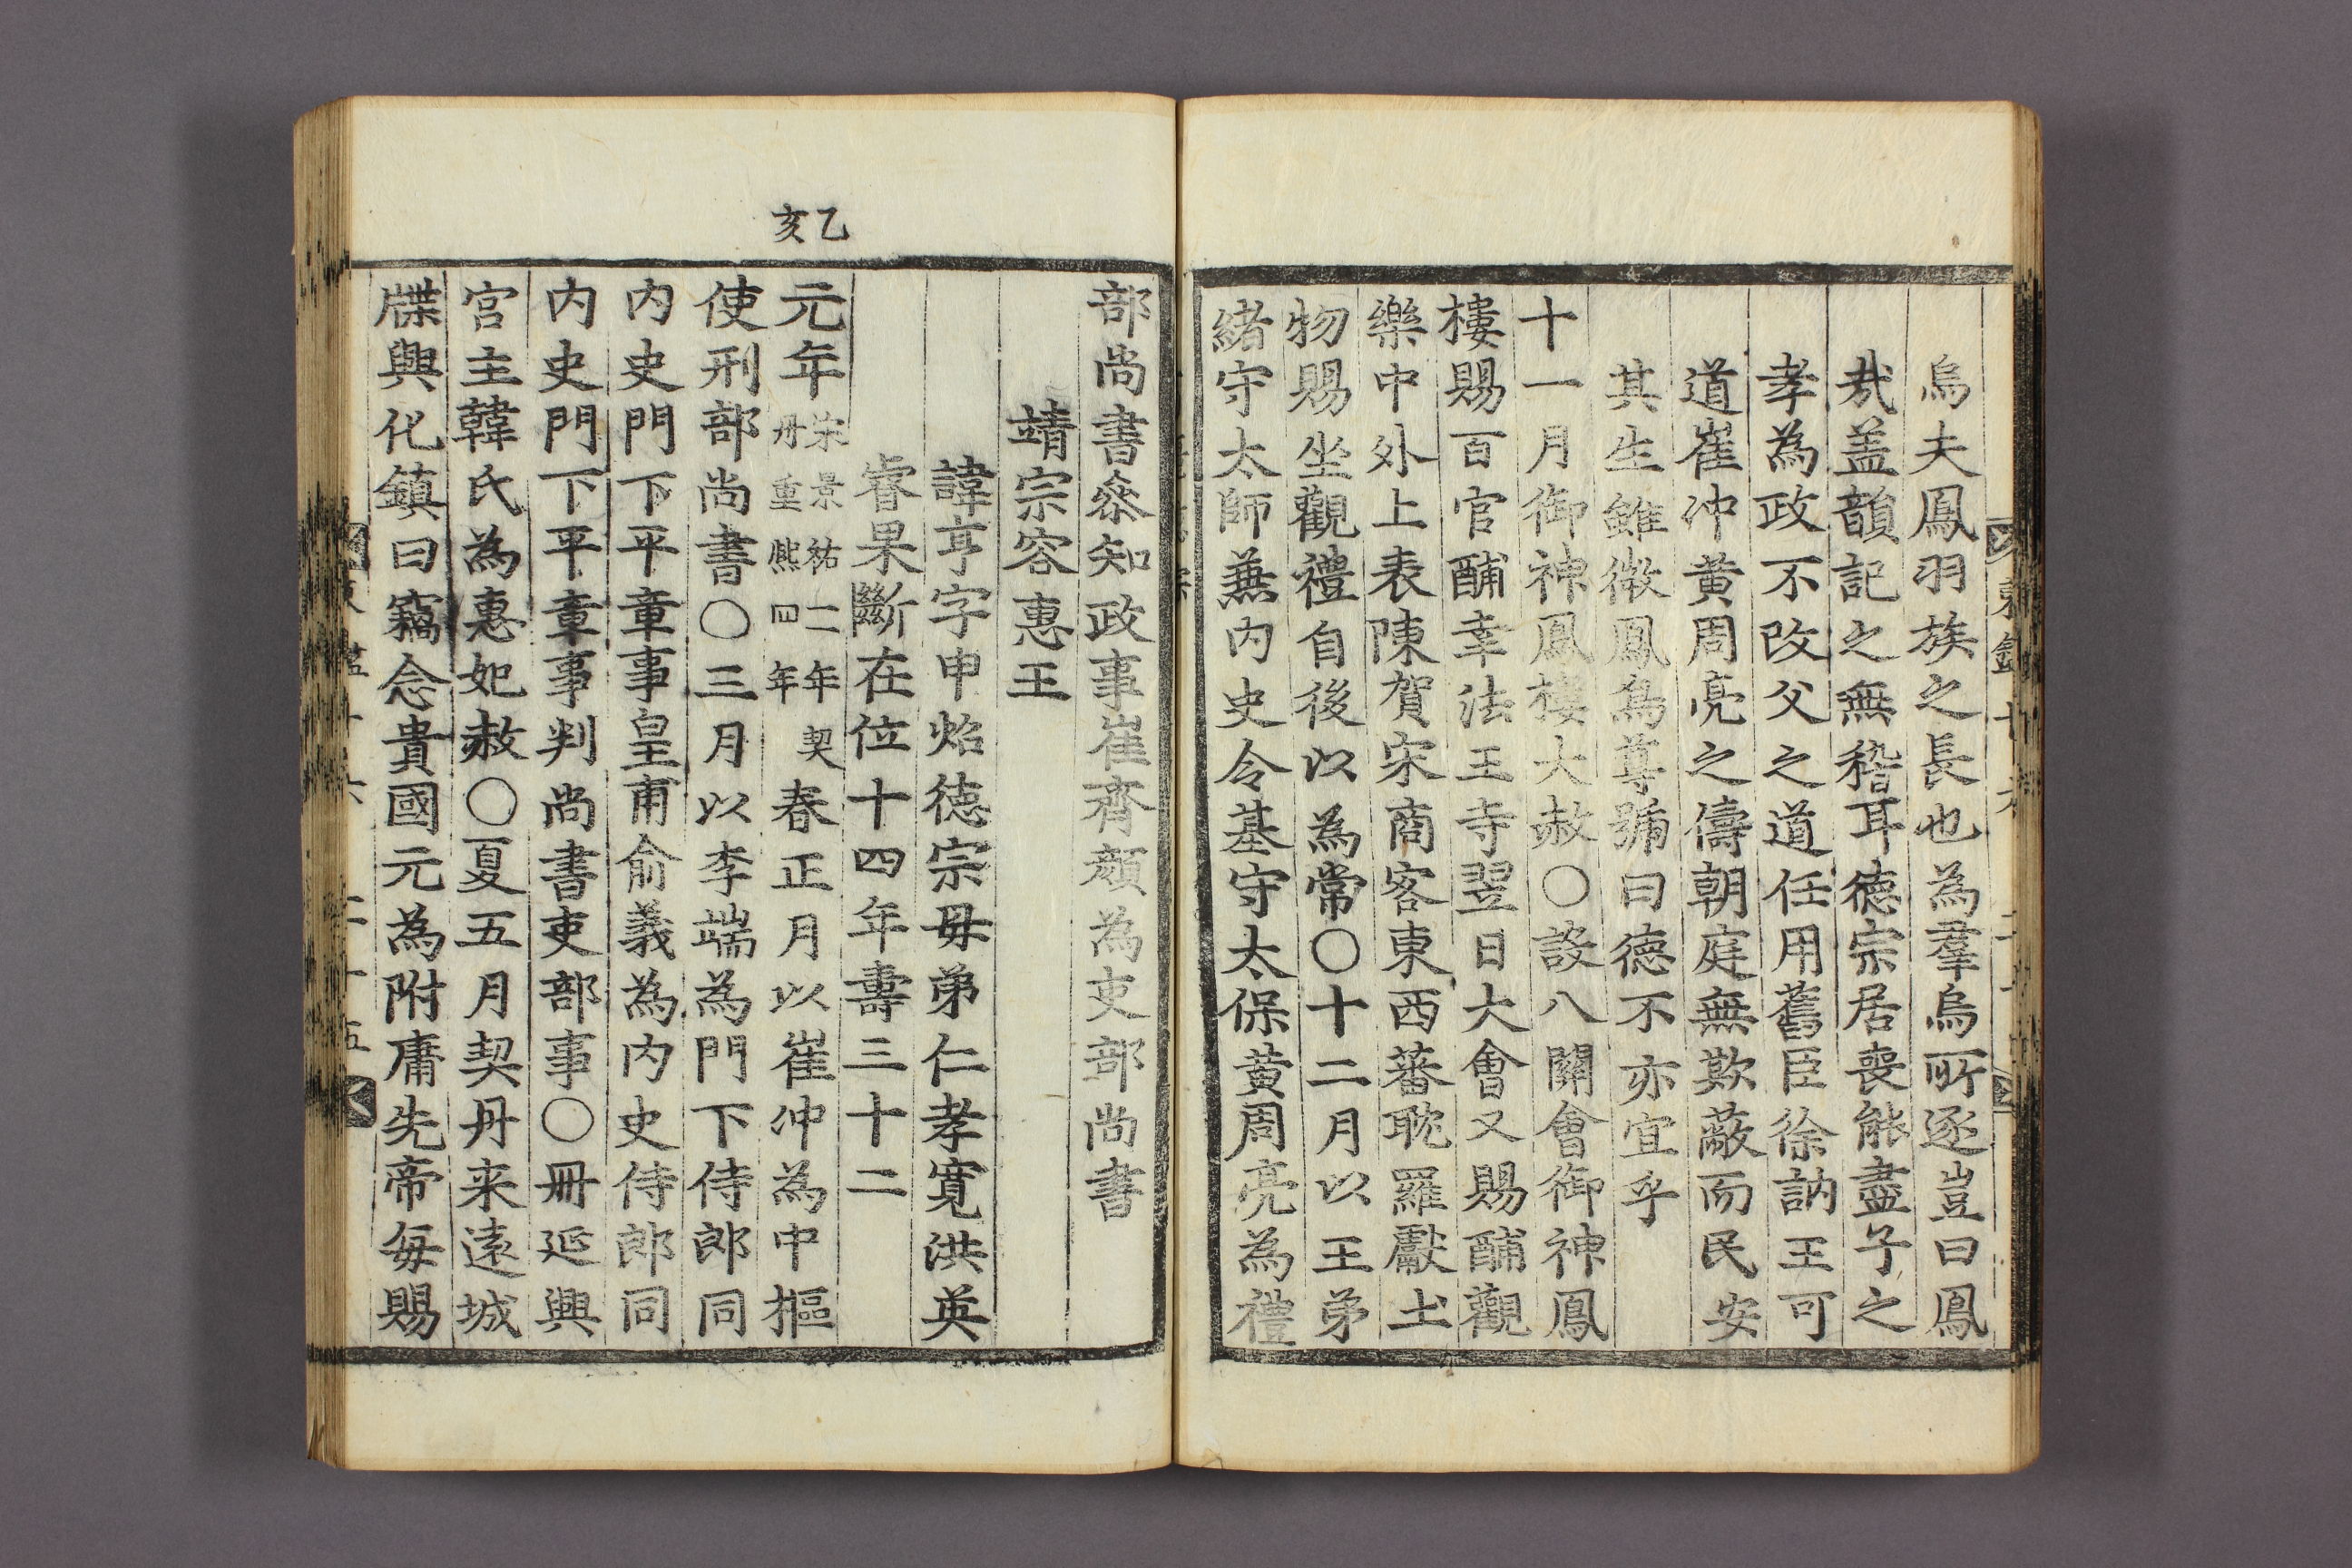 烏夫鳳羽族之長也為羣烏所逐豈曰鳳
㢤盖韻記之無稽耳德宗居喪能盡子之
孝為政不改父之道任用舊臣徐訥王可
道崔冲黄周亮之儔朝庭無欺蔽而民安
其生雖微鳳為尊號曰德不亦宜乎
十一月御神鳳樓大赦○設八關會御神鳳
樓賜百官酺幸法王寺翌日大會又賜酺觀
樂中外上表陳賀宋商客東西蕃耽羅獻土
物賜坐觀禮自後以為常○十二月以王弟
緖守太師兼内史令基守太保黄周亮為禮
部尚書叅知政事崔齊顔為吏部尚書
靖宗容惠王
諱亨字申炤德宗母弟仁孝寬洪英
睿果斷在位十四年壽三十二
乙亥
元年宋景祐二年契丹重熙四年春正月以崔冲為中樞
使刑部尚書○三月以李端為門下侍郎同
内史門下平章事皇甫俞義為内史侍郎同
内史門下平章事判尚書吏部事○冊延興
宫主韓氏為惠妃赦○夏五月契丹来遠城
牒興化鎮曰竊念貴國元為附庸先帝每賜